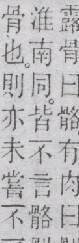 露骨曰骼有肉曰
淮南同。皆不言骼
骨也。則亦未嘗不